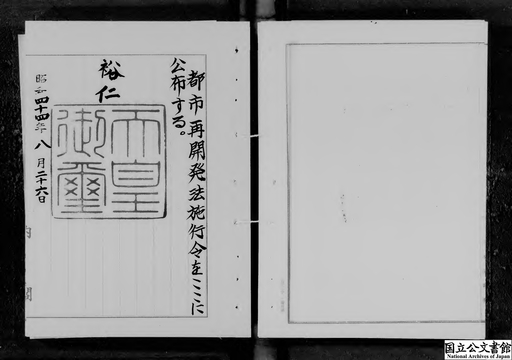 都市再開発法施行令をここに
公布する。
裕仁
天皇
御璽
昭和四十四年八月二十六日
内閣
国立公文書館
National Archives of Japan